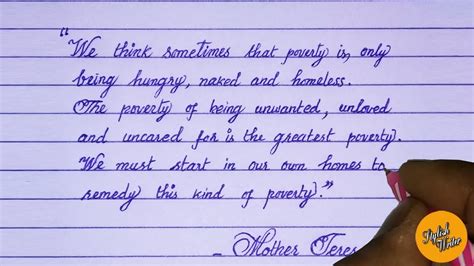 “We think sometimes that poverty is, only
being hungry, naked and homeless.
The poverty of being unwanted, unloved
and uncared for is the greatest poverty.
We must start in our own homes to
remedy this kind of poverty.”
– Mother Teres
Stylish
Writer